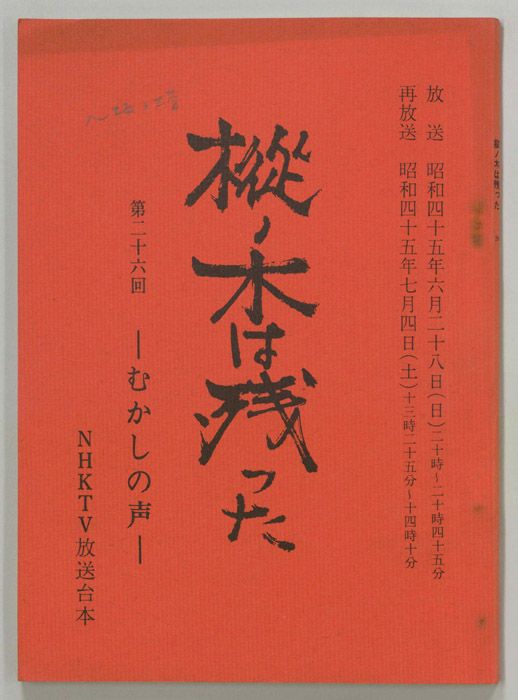 放送　昭和四十五年六月二十八日(日)二十時~二十時四十五分
再放送　昭和四十五年七月四日(土)十三時二十五分~十四時十分
樅ノ木は残った
第二十六回　―むかしの声―
NHKTV放送台本
樅ノ木は残った